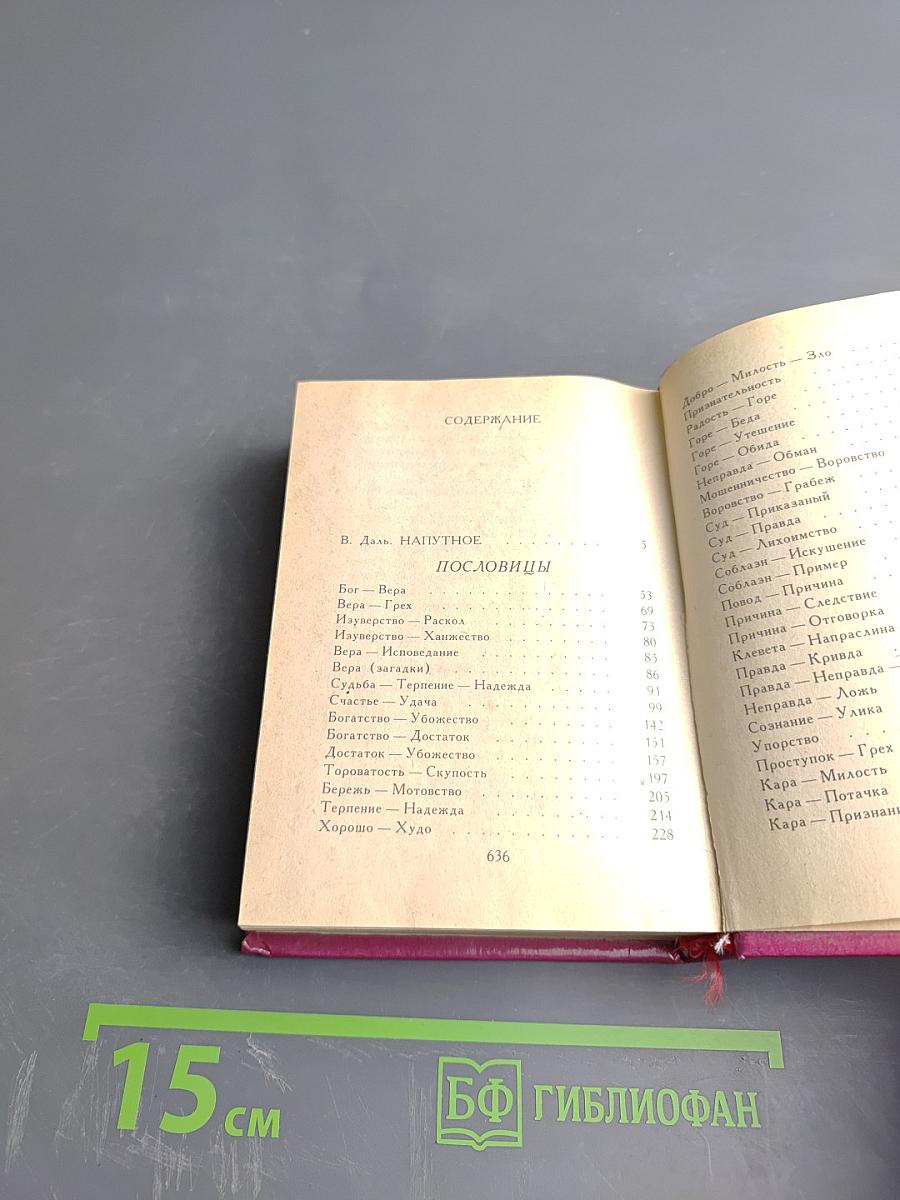 СОДЕРЖАНИЕ
В. Даль. НАПУТНОЕ . . . . . . . . 5
ПОСЛОВИЦЫ
Бог — Вера . . . . . . . . . . . 53
Вера — Грех . . . . . . . . . . . 69
Изуверство — Раскол . . . . . . . . 73
Изуверство — Ханжество . . . . . . . 80
Вера — Исповедание . . . . . . . . 85
Вера (загадки) . . . . . . . . . . 86
Судьба — Терпение — Надежда . . . . . 91
Счастье — Удача . . . . . . . . . . 99
Богатство — Убожество . . . . . . . . 142
Богатство — Достаток . . . . . . . . 151
Достаток — Убожество . . . . . . . . 157
Тороватость — Скупость . . . . . . . 197
Бережь — Мотовство . . . . . . . . 205
Терпение — Надежда . . . . . . . . 214
Хорошо — Худо . . . . . . . . . . 228
636
Добро — Милость — Зло
Признательность
Радость — Горе
Горе — Беда
Горе — Утешение
Горе — Обида
Неправда — Обман
Мошенничество — Воровство
Воровство — Грабеж
Суд — Приказный
Суд — Правда
Суд — Лихоимство
Соблазн — Искушение
Соблазн — Пример
Повод — Причина
Причина — Следствие
Причина — Отговорка
Клевета — Напраслина
Правда — Кривда
Правда — Неправда —
Неправда — Ложь
Сознание — Улика
Упорство
Проступок — Грех
Кара — Милость
Кара — Потачка
Кара —
15 см
БФ ГИБЛИОФАН